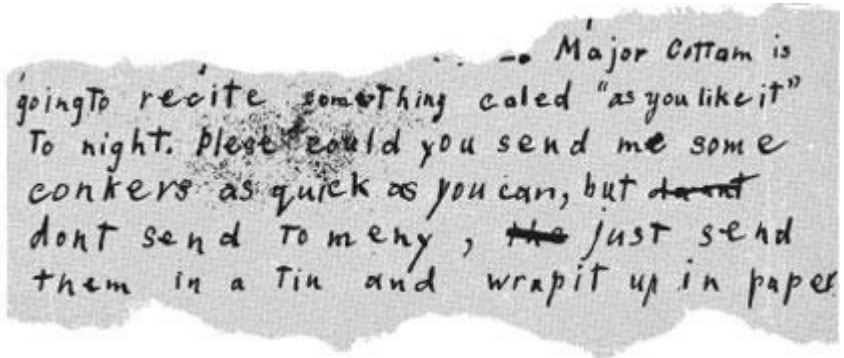 Major Cottam is
going to recite something caled "as you like it"
To night. Plese could you send me some
conkers as quick as you can, but
dont send to meny, the just send
them in a tin and wrapit up in paper